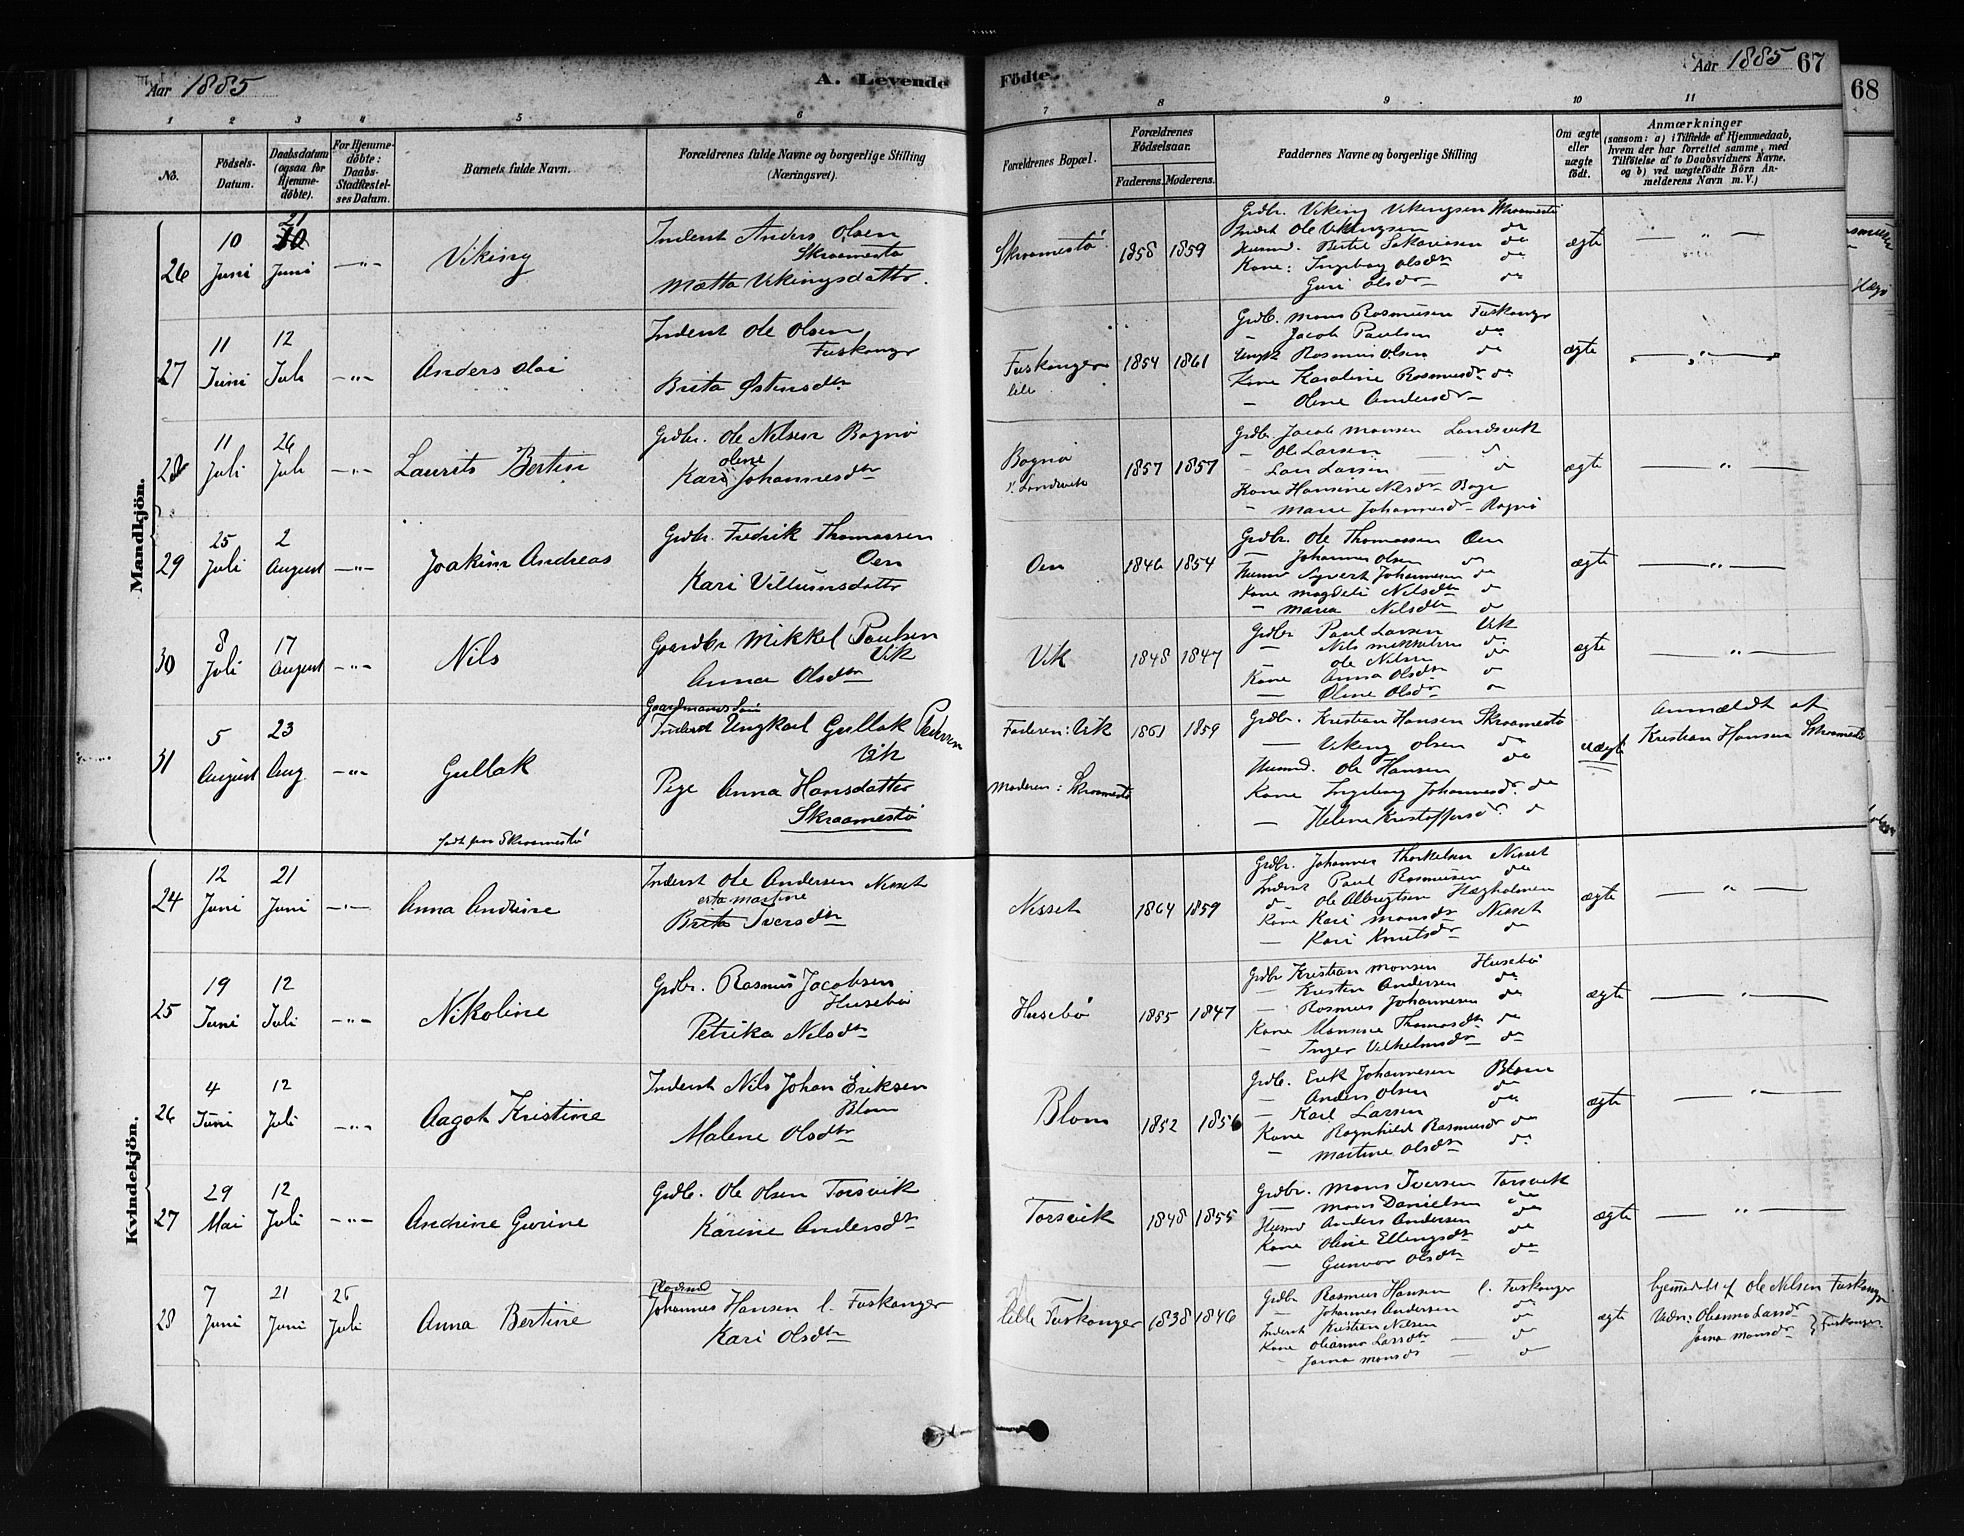 Aar 1885
A. Levende
Fødte.
Aar 1885 67
68
1 2 3 4 5 6 7 8 9 10 11
No.
Fødsels-Datum.
Daabsdatum (ogsaa for Hjemme-døbte).
For Hjemme-døbte: Daabs-Stadfæstel-ses Datum.
Barnets fulde Navn.
Forældrenes fulde Navne og borgerlige Stilling
(Næringsvei).
Forældrenes Bopæl.
Forældrenes Fødselsaar.
Faderens. Moderens.
Faddernes Navne og borgerlige Stilling
Om ægte eller uægte født.
Anmærkninger
(saasom: a) i Tilfælde af Hjemmedaab,
hvem der har forrettet samme, med
Tilføielse af to Daabsvidners Navne.
og b) ved uægtefødte Børn An-
melderens Navn m. V.)
Mandkjön.
26
10 Juni
21 Juni
Viking
Inderst Anders Olsen
Skraamestø
Mætta Vikingsdatter.
Skraamestø
1858 1859
Grdbr. Viking Vikingsen Skraamestø
Inderst Ole Vikingsen do
Husmd. Bertil Sakariasen do
Kone: Ingeborg Olsdtr do
Guri Olsdr do
ægte
27
11 Juni
12 Juli
Anders Olai
Inderst Ole Olsen
Fuskanger
Brita Østensdtr
Fuskanger lille
1854 1861
Grdb. Mons Rasmusen Fuskanger
— Jacob Paulsen do
Ungk Rasmus Olsen do
Kone Karoline Rasmusdr do
— Oline Andersdr
ægte
28
11 Juli
26 Juli
Laurits Bertin
Grdbr. Ole Nilsen Bognø
Kari Oline Johannesdtr
Bognø
v. Landsvik
1857 1857
Grdbr. Jacob Monsen Landsvik
— Ole Larsen do
— Lars Larsen do
Kone Hansine Nilsdr Bøge
— Marie Johannesdr Bognø
ægte
29
25 Juli
2 August
Joakim Andreas
Grdbr. Fredrik Thomassen
Oen
Kari Villumsdatter
Oen
1846 1854
Grdbr. Ole Thomassen Oen
— Johannes Olsen do
Husmd Syvert Johannesen do
Kone Magdeli Nilsdtr do
— Maria Nilsdtr do
ægte
30
8 Juli
17 August
Nils
Gaardbr Mikkel Paulsen
Vik
Anna Olsdtr
Vik
1848 1847
Grdbr Paul Larsen Vik
— Nils Mikkelsen do
— Ole Nilsen do
Kone Anna Olsdtr do
— Oline Olsdr do
ægte
31
5 August
23 Aug
Gullak
født paa Skraamestø
Gaardmands Søn
Inderst Ungkarl Gullak Pedersen
Vik
Pige Anna Hansdatter
Skraamestø
Faderen: Vik
Moderen: Skraamestø
1861 1859
Grdbr. Kristian Hansen Skraamestø
— Viking Olsen do
Husmd. Ole Hansen do
Kone Ingeborg Johannesdr. do
— Helene Kristoffersdr do
uægte
Anmeldt af
Kristian Hansen Skraamestø
Kvindekjön.
24
12 Juni
21 Juni
Anna Andrine
Inderst Ole Andersen Nesset
Brita Iversdtr
Nesset
1864 1859
Grdbr. Johannes Thorkelsen Nesset
Inderst Paul Rasmusen do
do Ole Albrigtsen Hægholmen
Kone Kari Monsdr Nesset
— Kari Knutsdr do
ægte
25
19 Juni
12 Juli
Nikoline
Grdbr. Rasmus Jacobsen
Husebø
Petrika Nilsdtr
Husebø
1855 1847
Grdbr Kristian Monsen Husebø
— Kristen Andersen do
— Rasmus Johannesen do
Kone Monsine Thomasdtr do
— Inger Vilhelmsdr do
ægte
26
4 Juni
12 Juli
Aagot Kristine
Inderst Nils Johan Eriksen
Blom
Malene Olsdtr
Blom
1852 1856
Grdb. Erik Johannesen Blom
— Anders Olsen do
— Karl Larsen do
Kone Ragnhild Rasmusdr do
— Martine Olsdtr do
ægte
27
29 Mai
12 Juli
Andrine Gurine
Grdb. Ole Olsen Torsvik
Karine Andersdtr
Torsvik
1848 1855
Grdbr. Mons Iversen Torsvik
— Mons Danielsen do
Husmd Anders Andersen do
Kone Oline Ellingsdtr do
— Gunvor Olsdtr do
ægte
28
7 Juni
21 Juni
26 Juli
Anna Bertine
Pladsmd
Johannes Hansen l. Fuskanger
Kari Olsdtr
lille Fuskanger
1838 1846
Grdbr Rasmus Hansen l. Fuskanger
— Johannes Andersen do
Inderst Kristian Nilsen do
Kone Olianna Larsdtr do
— Jorna Monsdr do
ægte
hjemmedøbt af Ole Nilsen Fuskanger
Vidn: Olianna Larsdr
Jorna Monsdr } Fuskanger